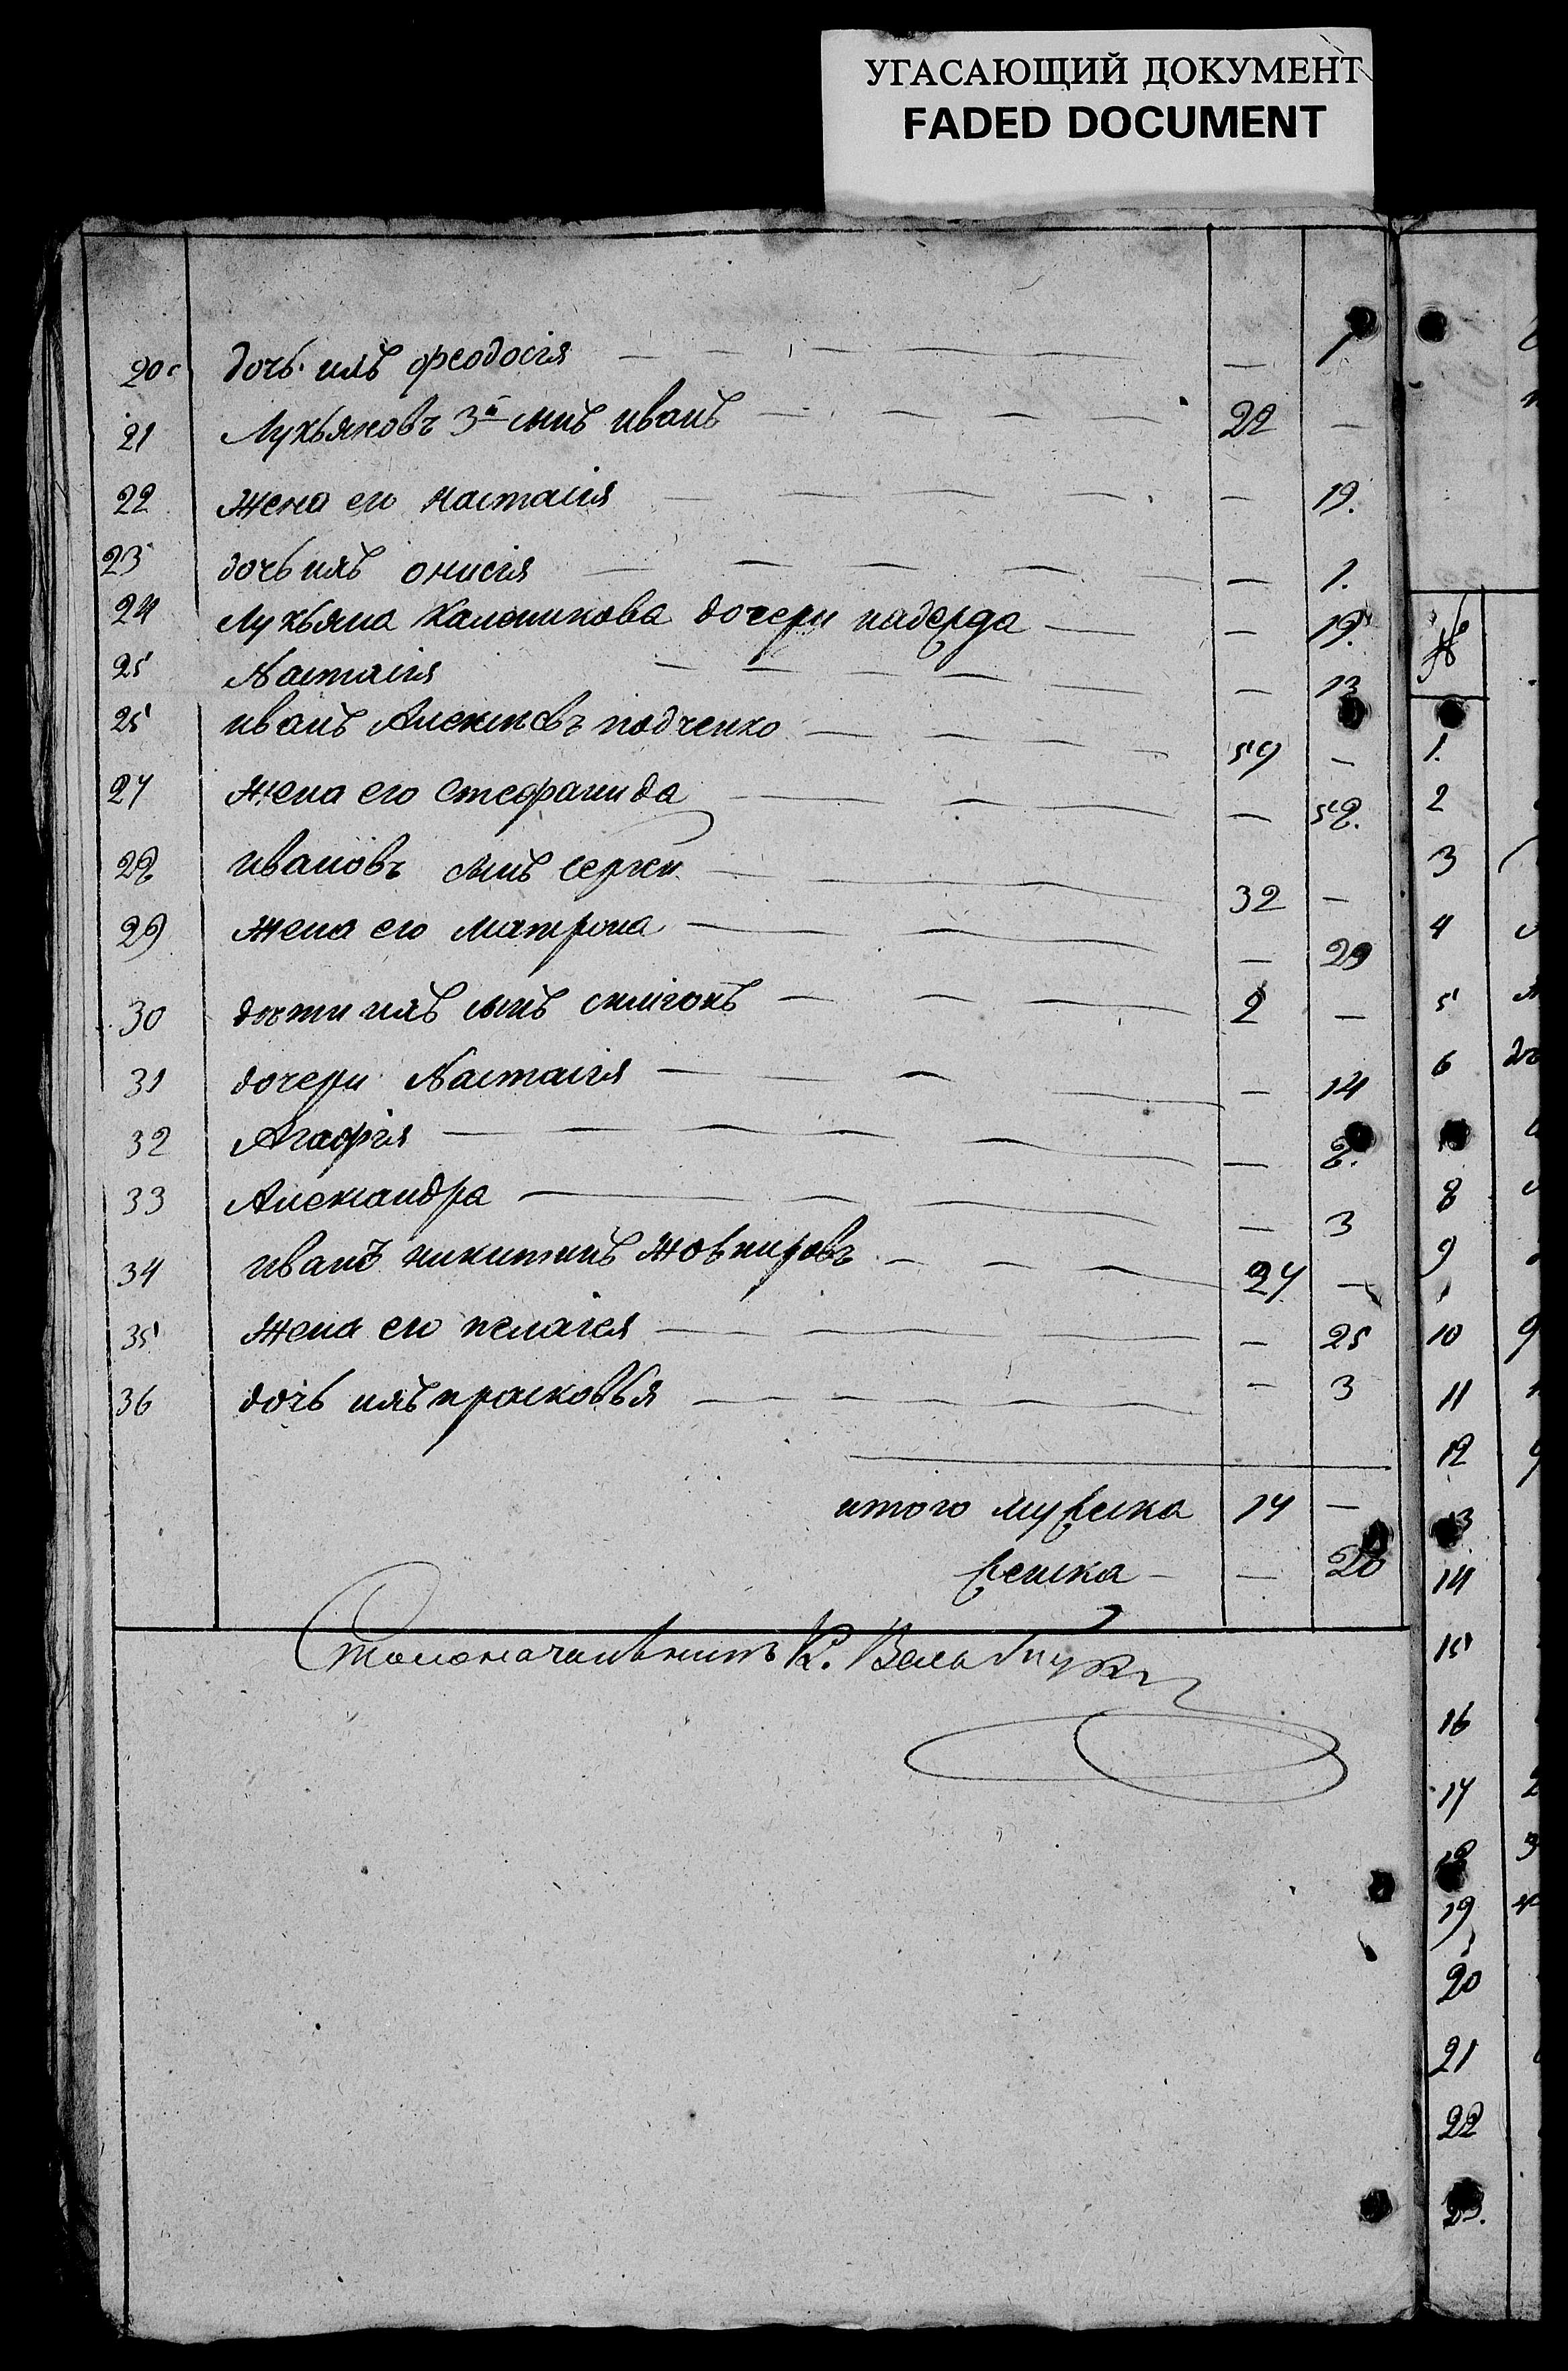 УГАСАЮЩИЙ ДОКУМЕНТ
FADED DOCUMENT
20. дочь ихъ феодосія — 1
21 Лукьяновъ 3й сынъ иванъ 22 —
22 жена его настасія — 19.
23 дочь ихъ онисія — 1.
24 Лукьяна Калоникова дочери надежда — 19.
25 Настасія — 13
25 иванъ Алексѣевъ подченко 59 —
27 жена его стефанида — 58.
28 ивановъ сынъ сергеи 32 —
29 жена его матрона — 29
30 дѣти ихъ сынъ 2 —
31 дочери Настасія — 14
32 Агафія — 8.
33 Александра — 3
34 иванъ никитинъ жовнировъ 27 —
35 жена его пелагея — 25
36 дочь ихъ прасковья — 3
итого мужеска 17 —
женска — 20
Столоначальникъ К.
№
1.
2
3
4
5
6
8
9
10
11
12
13
14
15
16
17
18
19
20
21
22
23.